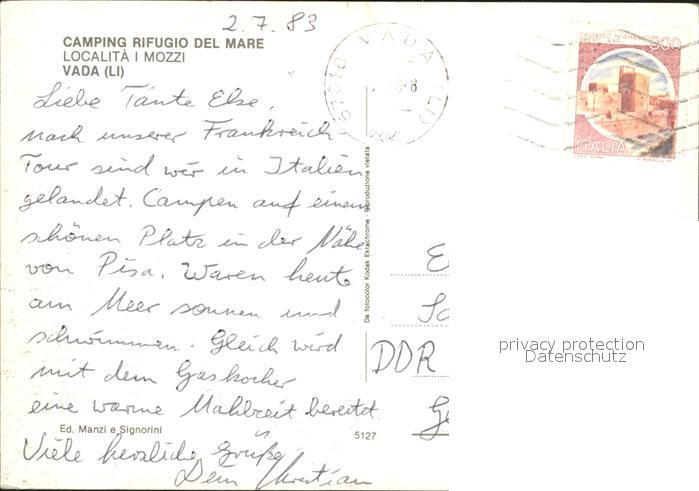 2.7.83
CAMPING RIFUGIO DEL MARE
LOCALITÀ I MOZZI
VADA (LI)
Liebe Tante Else,
nach unserer Frankreich
Tour sind wir in Italien
gelandet. Campen auf einem
schönen Platz in der Nähe
von Pisa. Waren heute
am Meer sonnen und
schwimmen. Gleich wird
mit dem Gaskocher
eine warme Mahlzeit bereitet.
Viele herzliche Grüße
Dein Christian
Ed. Manzi e Signorini
5127
Da fotocolor Kodak Ektachrome - Riproduzione vietata
57018 VADA (LI)
ITALIA
DDR
privacy protection
Datenschutz